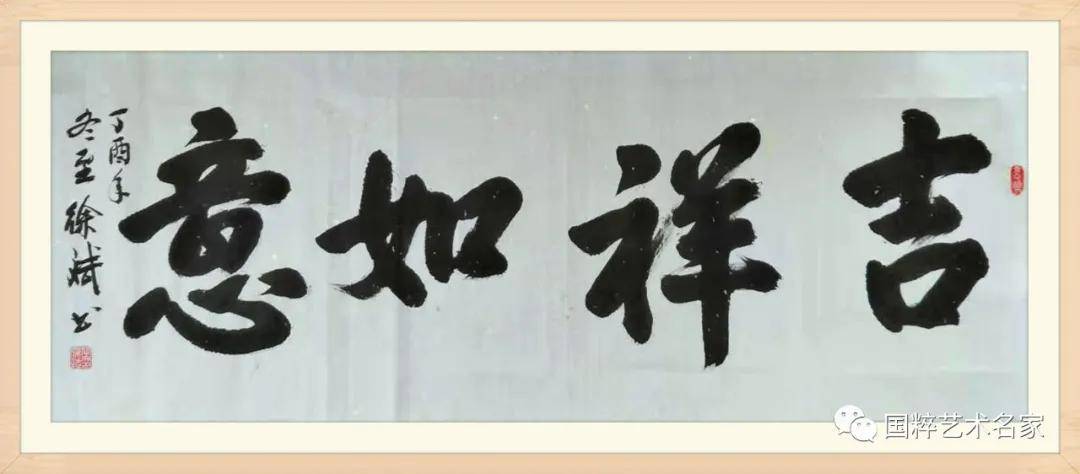 吉祥如意
丁酉年
冬至徐斌书
国粹艺术名家